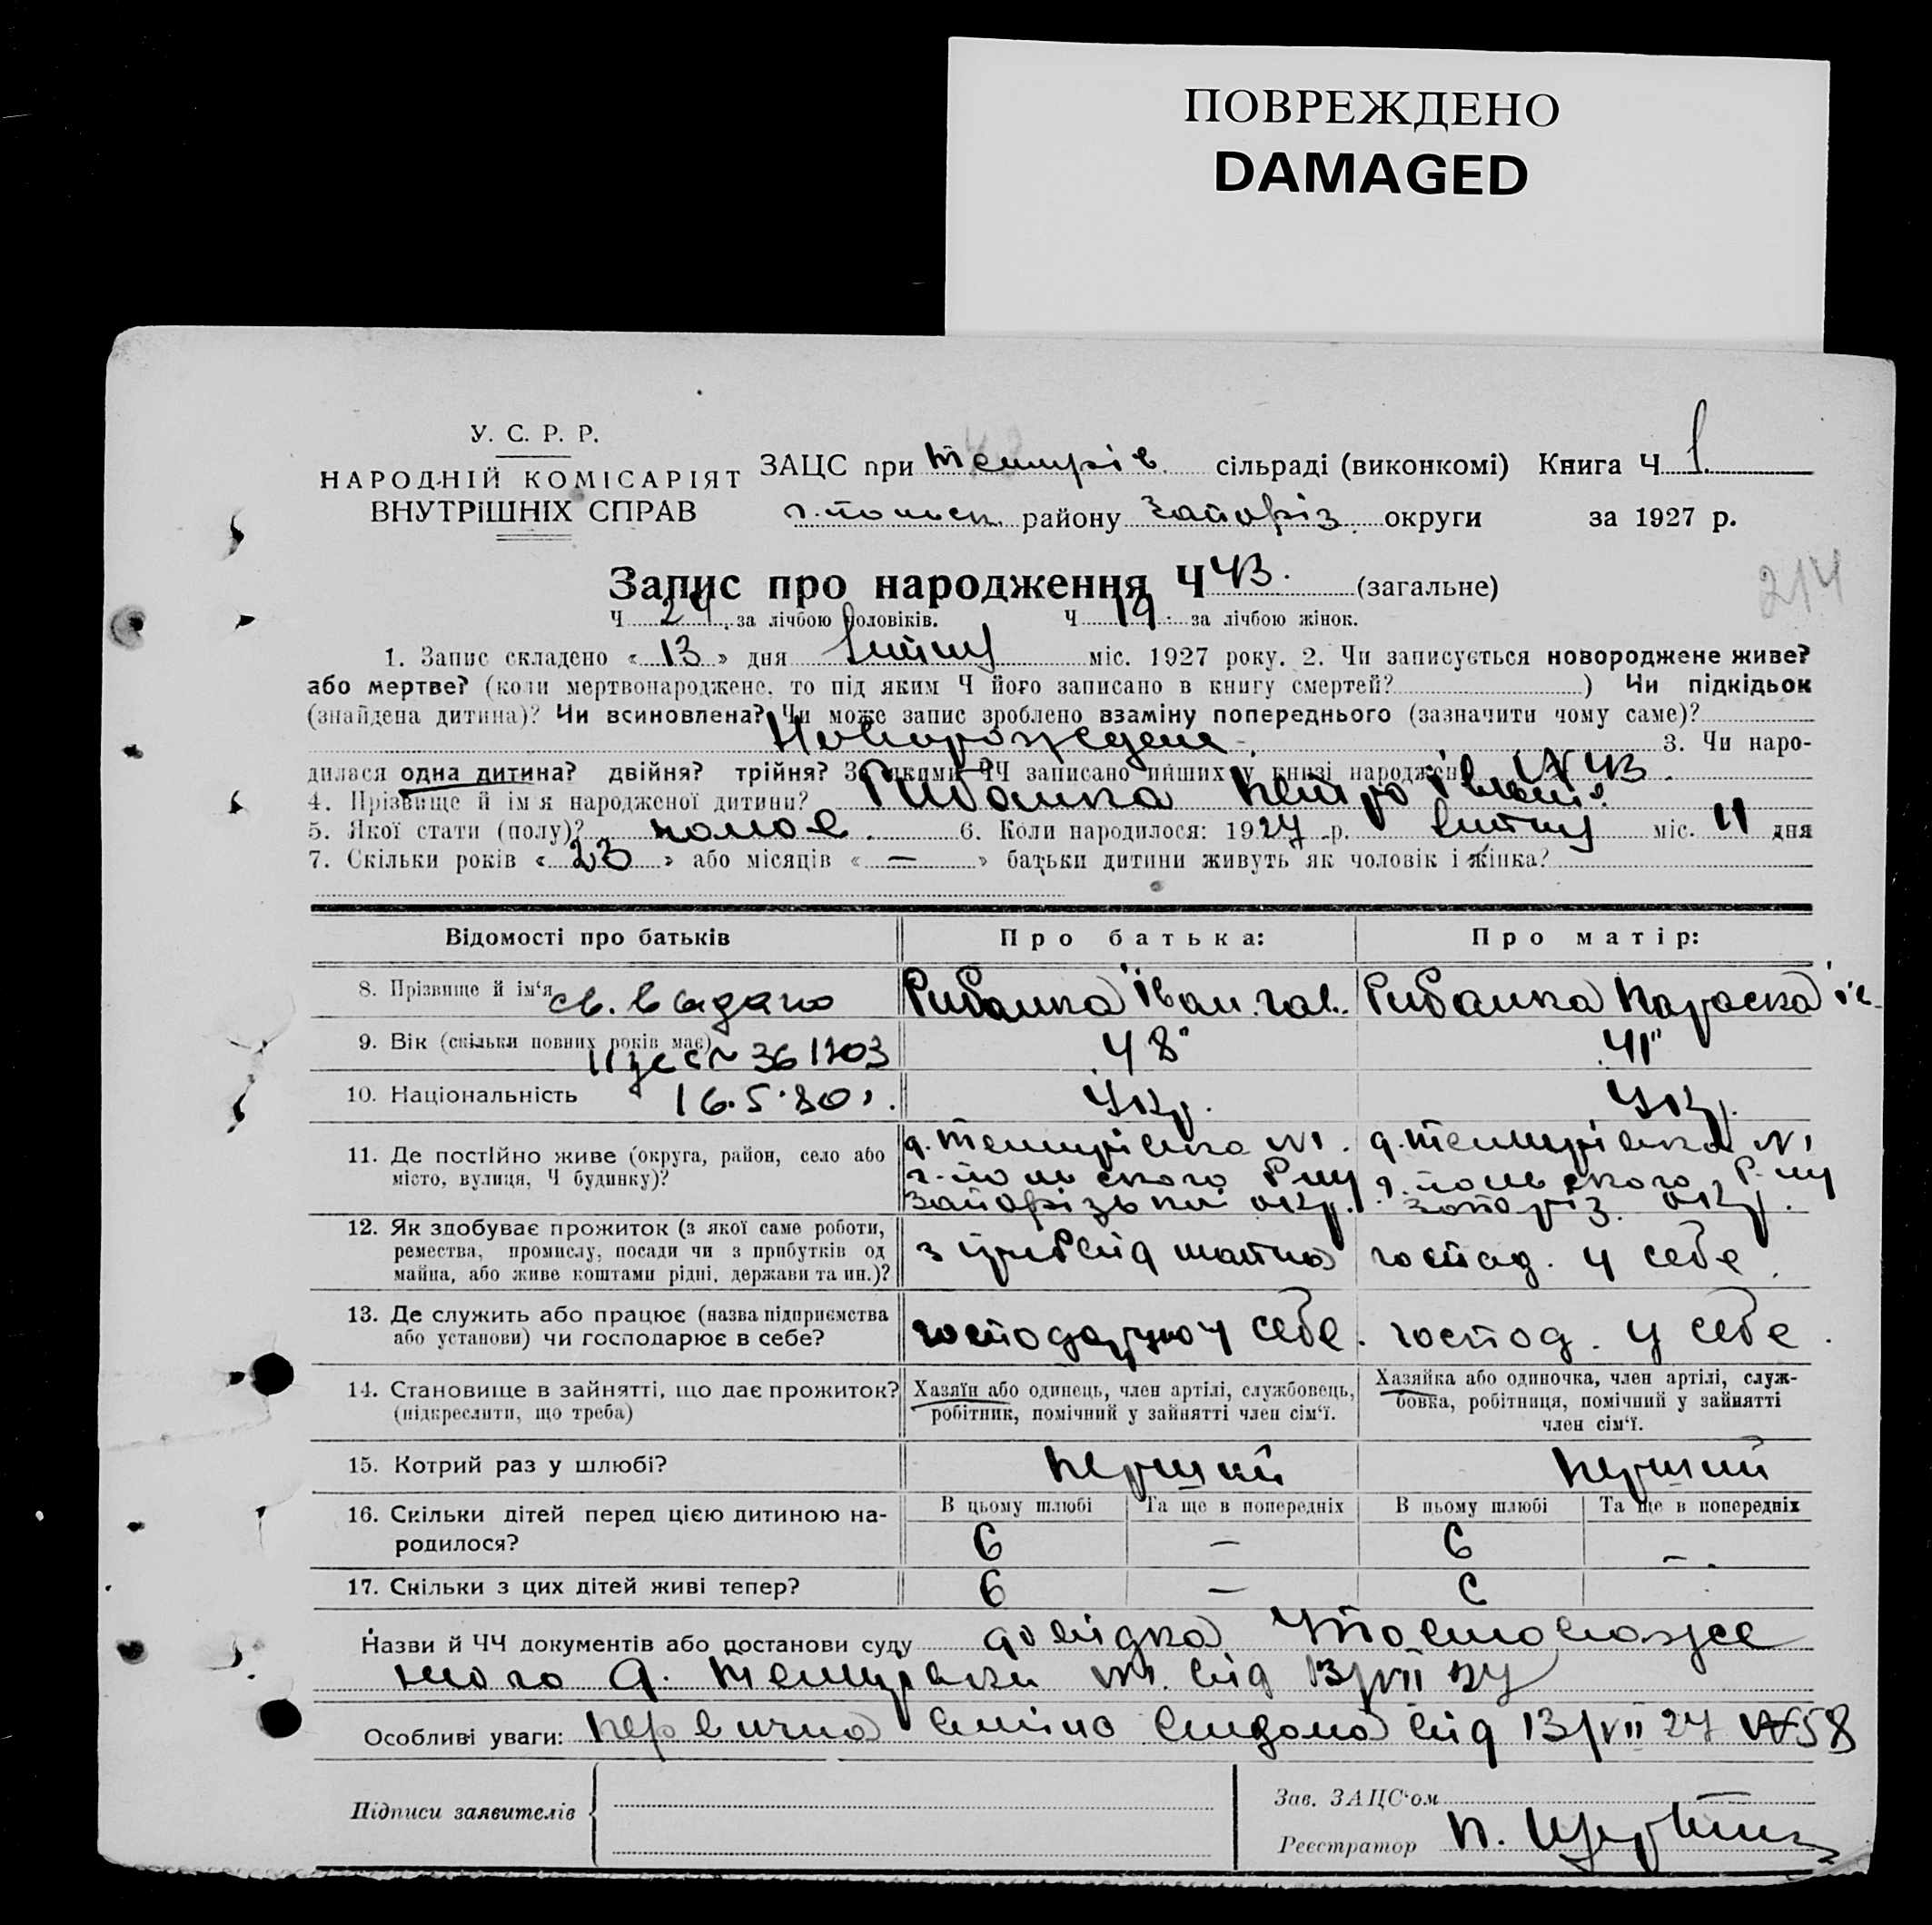 ПОВРЕЖДЕНО
DAMAGED
У. С. Р. Р.
НАРОДНІЙ КОМІСАРІЯТ
ВНУТРІШНІХ СПРАВ
ЗАЦС при Темирів сільраді (виконкомі) Книга Ч 1
г. польск. району Запоріз. округи за 1927 р.
214
Запис про народження Ч 43. (загальне)
Ч 24. за лічбою чоловіків. Ч 19. за лічбою жінок.
1. Запис складено « 13 » дня липня міс. 1927 року. 2. Чи записується новороджене живе?
або мертве? (коли мертвонароджене, то під яким Ч його записано в книгу смертей? ) Чи підкідьок
(знайдена дитина)? Чи всиновлена? Чи може запис зроблено взаміну попереднього (зазначити чому саме)?
Новорожден 3. Чи наро-
дилася одна дитина? двійня? трійня? За якими ЧЧ записано инших у книзі народжень № 43.
4. Прізвище й ім'я народженої дитини? Рибалка Петро Іван.
5. Якої стати (полу)? 6. Коли народилося: 1927 р. липня міс. 11 дня
7. Скільки років « 23 » або місяців « — » батьки дитини живуть як чоловік і жінка?
Відомості про батьків Про батька: Про матір:
8. Прізвище й ім'я св. выдано Рибалка Іван Гав. Рибалка Параска
9. Вік (скільки повних років має) 361203 48 41
10. Національність 16.5.80 Укр. Укр.
11. Де постійно живе (округа, район, село або місто, вулиця, Ч будинку)?
д. Темирівка №1 г. польского Р-ну Запорізькой окр.
д. Темирівка №1 г. польского Р-ну Запоріз. окр.
12. Як здобуває прожиток (з якої саме роботи, ремества, промислу, посади чи з прибутків од майна, або живе коштами рідні, держави та ин.)?
з прибут. від господ. у себе
13. Де служить або працює (назва підприємства або установи) чи господарює в себе?
господарую у себе. господ. у себе.
14. Становище в зайнятті, що дає прожиток? (підкреслити, що треба)
Хазяїн або одинець, член артілі, службовець, робітник, помічний у зайнятті член сім'ї.
Хазяйка або одиночка, член артілі, служ-
бовка, робітниця, помічний у зайнятті
член сім'ї.
15. Котрий раз у шлюбі? перший перший
В цьому шлюбі Та ще в попередніх В цьому шлюбі Та ще в попередніх
16. Скільки дітей перед цією дитиною на-
родилося? 6 — 6 —
17. Скільки з цих дітей живі тепер? 6 — 6
Назви й ЧЧ документів або постанови суду довідка Уповноваже
ного д. Темирівки №1. від 13/VII 27
Особливі уваги: від 13/VII 27 №58
Підписи заявителів
Зав. ЗАЦС'ом
Реєстратор